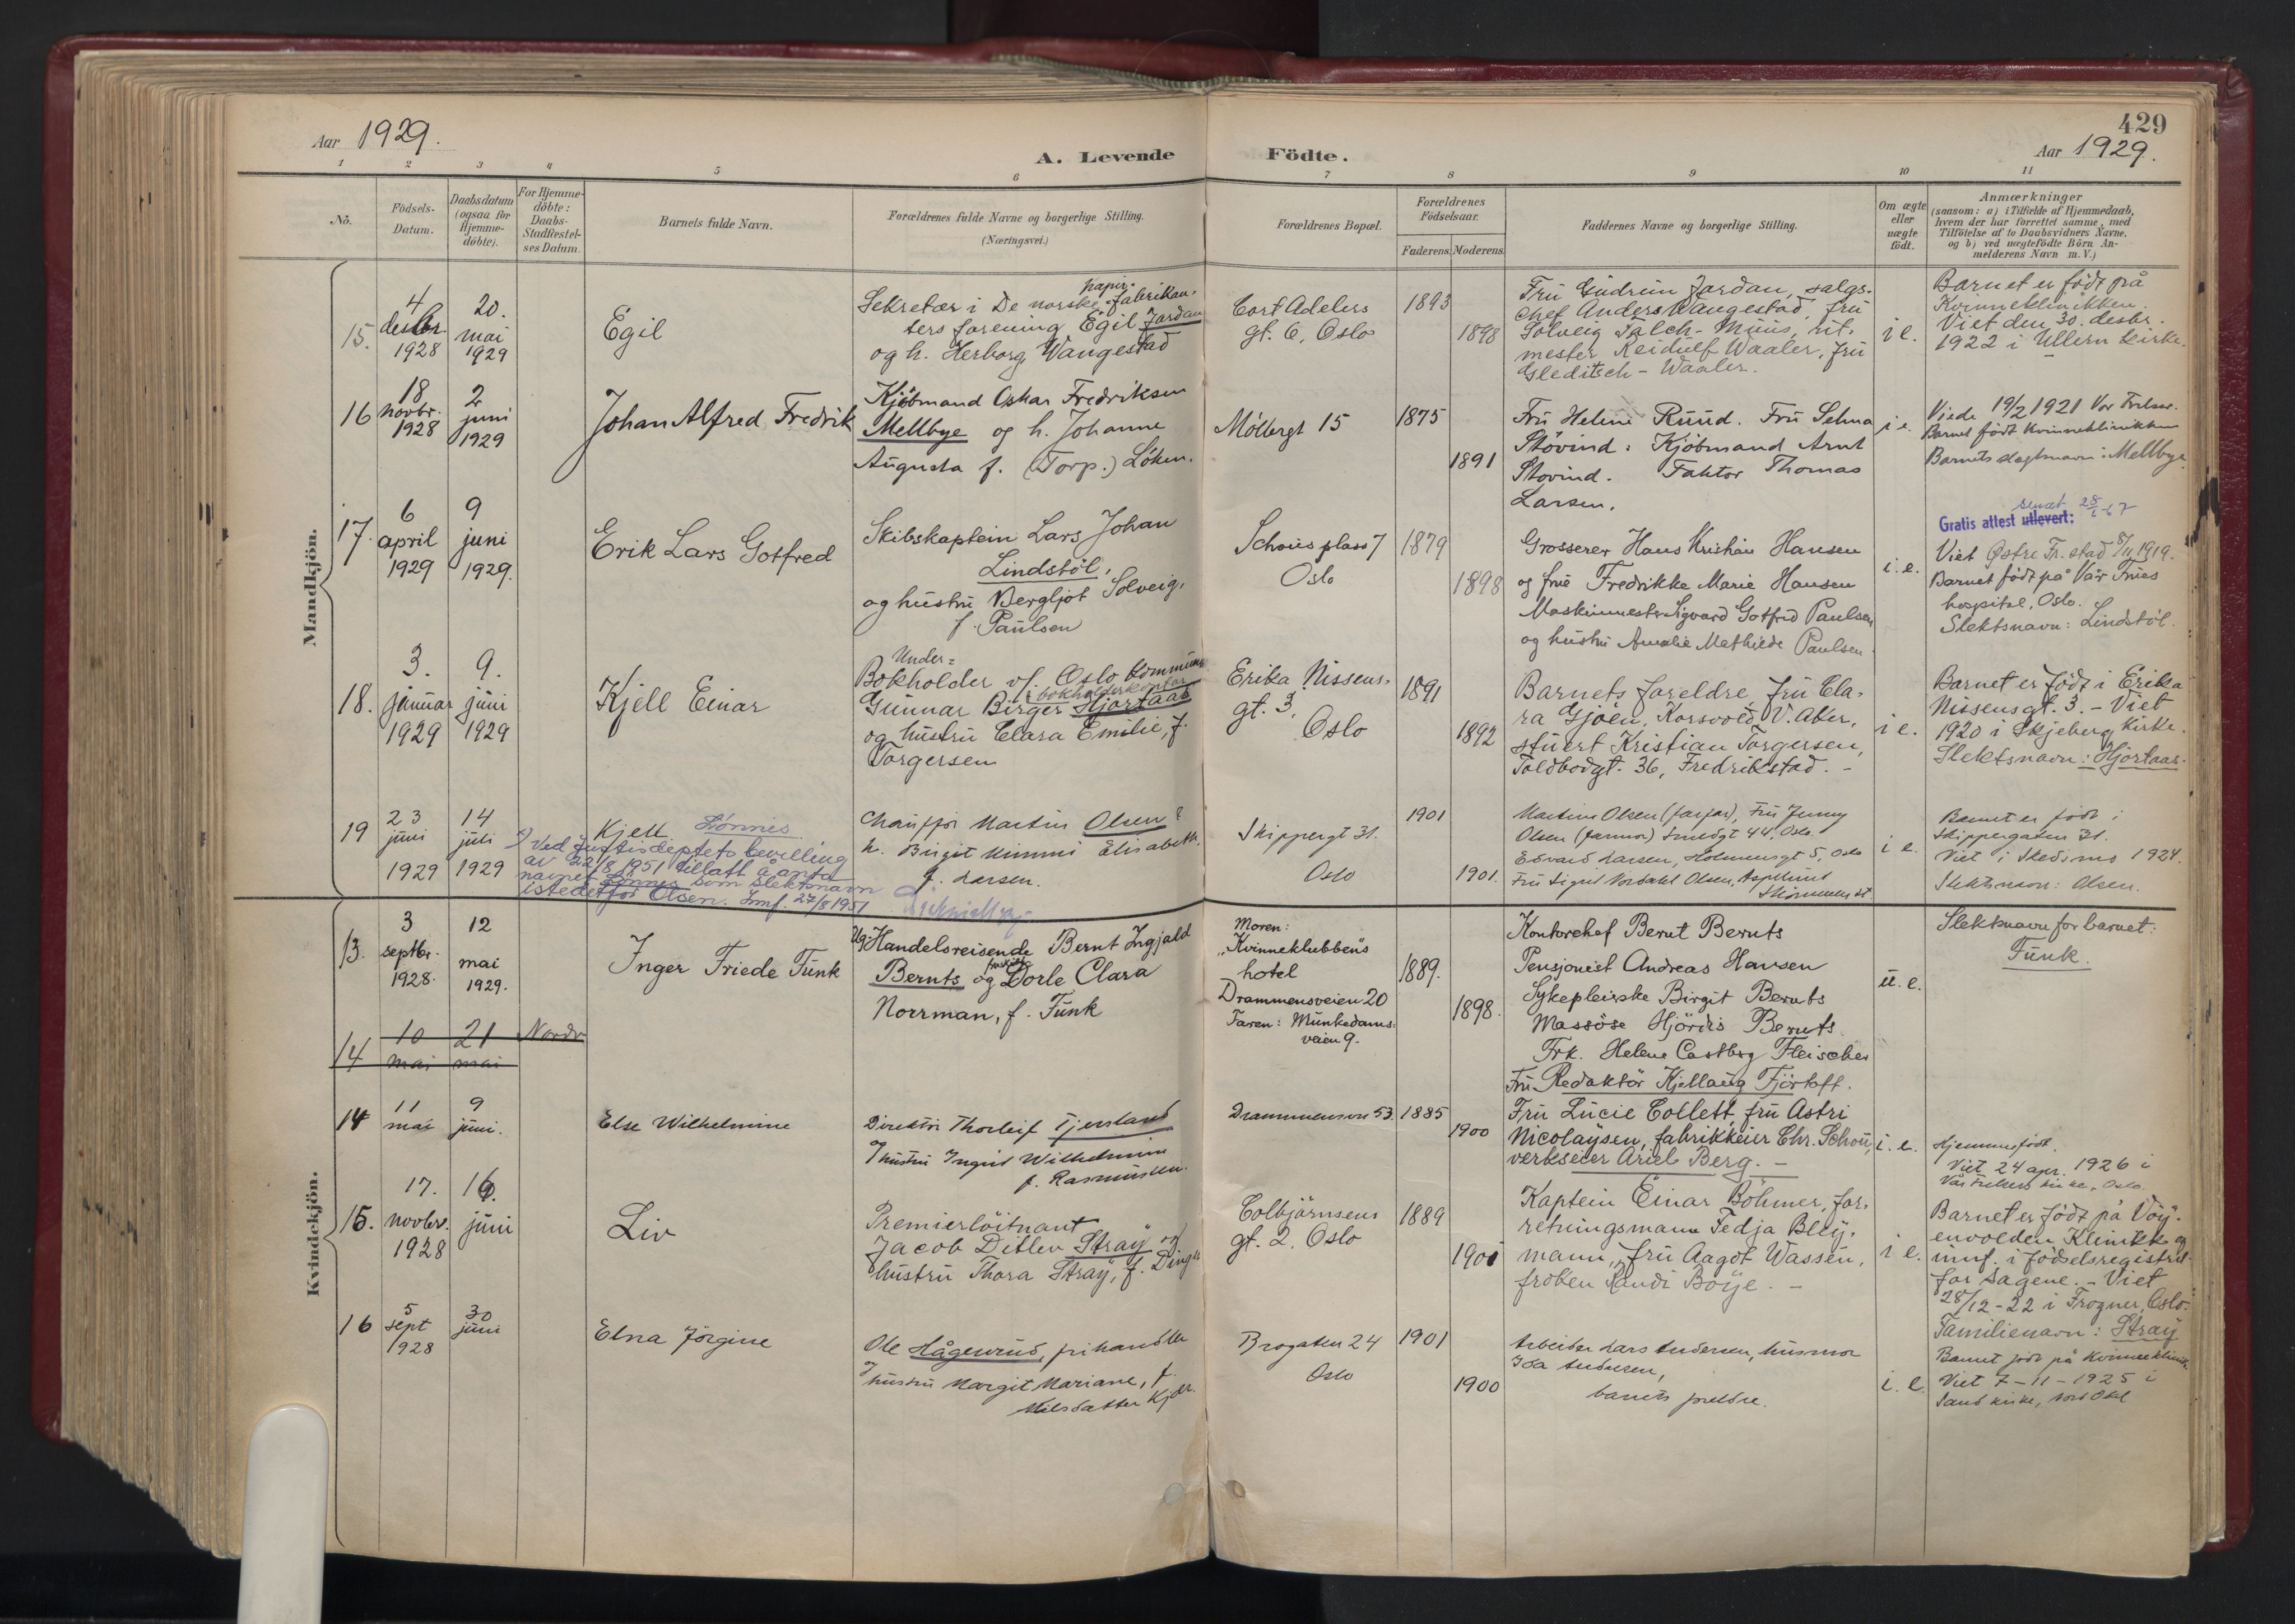 429
Aar 1929.
Aar 1929.
A. Levende Födte.
1 2 3 4 5 6 7 8 9 10 11
No.
Födsels-
Datum.
Daabsdatum
(ogsaa for
Hjemme-
döbte).
For Hjemme-
döbte:
Daabs-
Stadfæstel-
ses Datum.
Barnets fulde Navn.
Forældrenes fulde Navne og borgerlige Stilling.
(Næringsvei.)
Forældrenes Bopæl.
Forældrenes
Födselsaar.
Faderens. Moderens.
Faddernes Navne og borgerlige Stilling.
Om ægte
eller
uægte
födt.
Anmærkninger
(saasom: a) i Tilfælde af Hjemmedaab,
hvem der har forrettet samme, med
Tilföielse af to Daabsvidners Navne,
og b) ved uægtefödte Börn An-
melderens Navn m. V.)
Mandkjön.
15.
4
desbr.
1928
20.
mai
1929
Egil
papir-
Sekretær i De norske fabrikan-
ters forening Egil Jordan
og h. Herborg Wangestad
Cort Adelers
gt. 6, Oslo
1893
1898
Fru Gudrun Jordan, salgs-
chef Anders Wangestad, fru
Solveig Falch-Muus, rit-
mester Reidulf Waaler, fru
Gleditsch-Waaler.
i e.
Barnet er födt på
Kvinneklinikken.
Viet den 30. desbr.
1922 i Ullern kirke.
16
18
novbr.
1928
2
juni
1929
Johan Alfred Fredrik
Kjöbmand Oskar Fredriksen
Mellbye og h. Johanne
Augusta f. (Torp.) Löken.
Möllergt 15
1875
1891
Fru Helene Ruud. Fru Selma
Stövind: Kjöbmand Arnt
Stövind. Faktor Thomas
Larsen.
i e.
Viede 19/2 1921 Vor Frelser.
Barnet födt Kvinneklinikken
Barnets slegtnavn: Mellbye
17.
6
april
1929
9
juni
1929.
Erik Lars Gotfred
Skibskaptein Lars Johan
Lindstöl,
og hustru Bergljot Solveig,
f. Paulsen
Schous plass 7
Oslo
1879
1898
Grosserer Hans Kristian Hansen
og frue Fredrikke Marie Hansen
Maskinmester Sigvard Gotfred Paulsen
og hustru Amalie Mathilde Paulsen
i. e.
sendt
Gratis attest utlevert:
Viet Östre Fr.stad 8/11 1919.
Barnet födt på Vår Frues
hospital, Oslo.
Slektsnavn: Lindstöl.
18.
3.
januar
1929
9.
juni
1929
Kjell Einar
Under-
Bokholder v/. Oslo kommunes
bokholderkontor
Gunnar Birger Hjortaas
og hustru Clara Emilie, f.
Torgersen
Erika Nissens-
gt. 3,
Oslo
1891
1892
Barnets foreldre, fru Cla-
ra Gjöen, Korsvold, V. Aker,
stuert Kristian Torgersen,
Toldbodgt. 36, Fredrikstad. -
i e.
Barnet er födt i Erika
Nissensgt. 3. - Viet
1920 i Skjeberg kirke.
Slektsnavn: Hjortaas.
19
23
juni
1929
14
juli
1929
Kjell Lönnes
Ved Justisdeptets bevilling
av 22/8 1951 tillatt å anta
navnet Lönnes som slektsnavn
istedetfor Olsen. Innf. 27/8 1951
Chauffør Martin Olsen &
h. Birgit Mimmi Elisabeth
f. Larsen.
Skippergt 31.
Oslo
1901
1901.
Martin Olsen (farfar), Fru Jenny
Olsen (farmor) Smedgt 44, Oslo.
Edvard Larsen, Holmensgt 5, Oslo
Fru Sigrid Nordahl Olsen,
i e.
Barnet er födt i
Skippergaten 31.
Viet i Skedsmo 1924.
Slektsnavn: Olsen.
Kvindekjön.
13.
3
septbr.
1928.
12
mai
1929.
Inger Friede Funk
Ug. Handelsreisende Bernt Ingjald
Bernts og fraskilte Dorle Clara
Norrman, f. Funk
Moren:
"Kvinneklubbens
hotel
Drammensveien 20
Faren: Munkedams-
veien 9.
1889.
1898.
Kontorchef Bernt Bernts
Pensjonist Andreas Hansen
Sykepleierske Birgit Bernts
Massöse Hjördis Bernts.
Frk. Helene Castberg Fleischer
Fru Redaktör Kjellaug Fjörtoft.
u. e.
Slektsnavn for barnet:
Funk.
14
10
mai
21
mai
Nordv
14
11
mai
9
juni.
Else Wilhelmine
Direktör Thorleif Tjersland
& hustru Ingrid Wilhelmine
f. Rasmussen.
Drammensvn 53.
1885
1900
Fru Lucie Collett, fru Astri
Nicolaysen, fabrikkeier Chr. Schou,
verkseier Ariel Berg. -
i. e.
Hjemmefödt.
Viet 24 apr. 1926 i
Vår Frelsers kirke, Oslo.
15.
17.
novbr.
1928
16.
juni
Liv
Premierlöitnant
Jacob Ditlev Stray og
hustru Thora Stray, f.
Colbjörnsens
gt. 2, Oslo
1889
1901
Kaptein Einar Böhmer, for-
retningsmann Tedja Bley-
mann, fru Aagot Wassen,
fröken Randi Böije. -
i e.
Barnet er födt på Vöy-
envolden Klinikk og
innf. i födselsregistret
for Sagene. - Viet
28/12-22 i Frogner, Oslo.
Familienavn: Stray
16
5
sept
1928
30
juni
Elna Jörgine
Ole Hågensrud, frihandler
& hustru Margit Mariane, f.
Nilsdatter Kjær.
Brogaten 24
Oslo
1901
1900
Arbeider Lars Andersen, husmor
Ida Andersen,
barnets foreldre.
i. e.
Barnet födt på Kvinneklinik.
Viet 7-11-1925 i
Sand kirke, Nord Odal